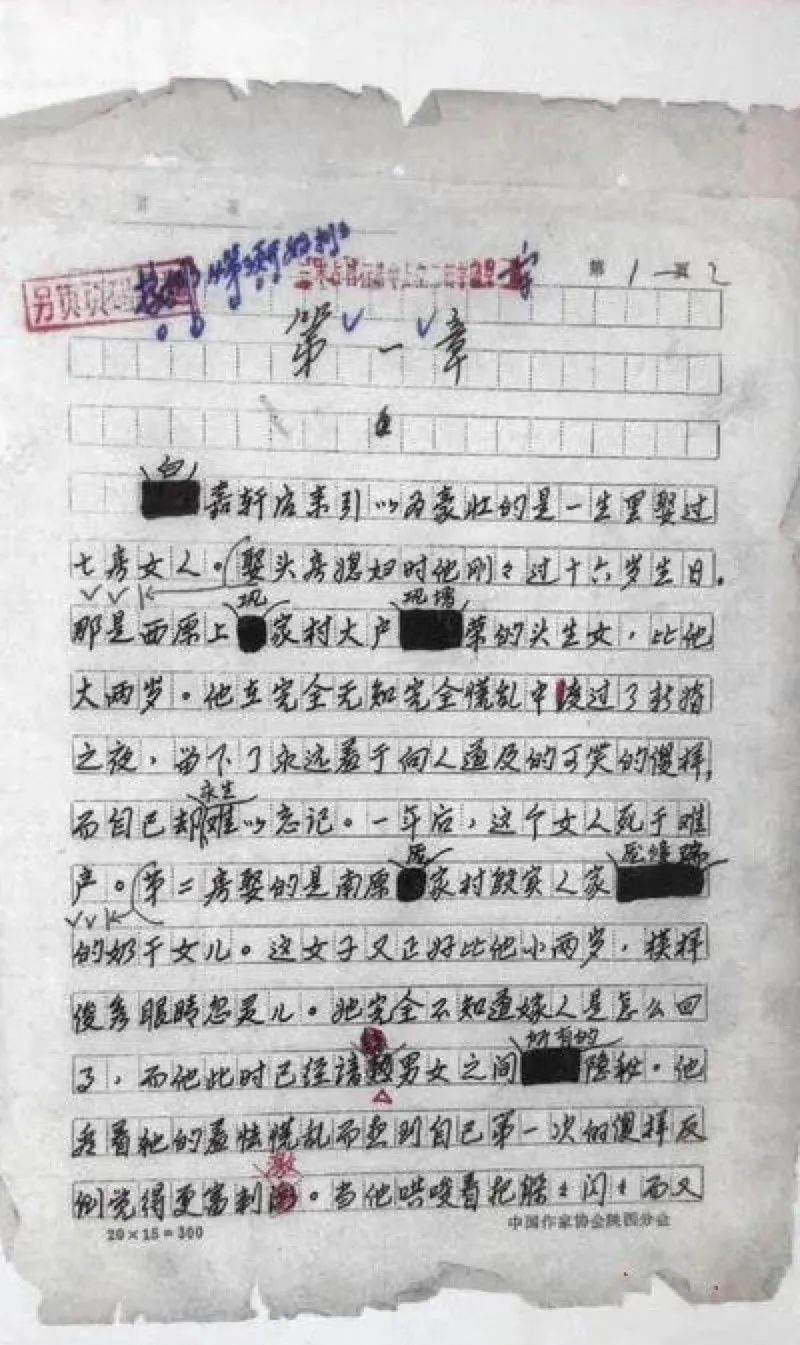 第 1 页 2
第一章
白
嘉轩后来引以为豪壮的是一生里娶过
七房女人。娶头房媳妇时他刚刚过十六岁生日。
巩 巩增
那是西原上 家村大户 荣的头生女，比他
大两岁。他在完全无知完全慌乱中度过了新婚
之夜，留下了永远羞于向人道及的可笑的傻样，
永生
而自己却难以忘记。一年后，这个女人死于难
庞 庞修瑞
产。第二房娶的是南原 家村殷实人家
的奶干女儿。这女子又正好比他小两岁，模样
俊秀眼睛忽灵儿。她完全不知道嫁人是怎么回
所有的
了，而他此时已经谙熟男女之间 隐秘。他
看着她的羞怯慌乱而想到自己第一次的傻样反
激
倒觉得更富刺 。当他哄唆着把躲躲闪闪而又
20×15=300
中国作家协会陕西分会